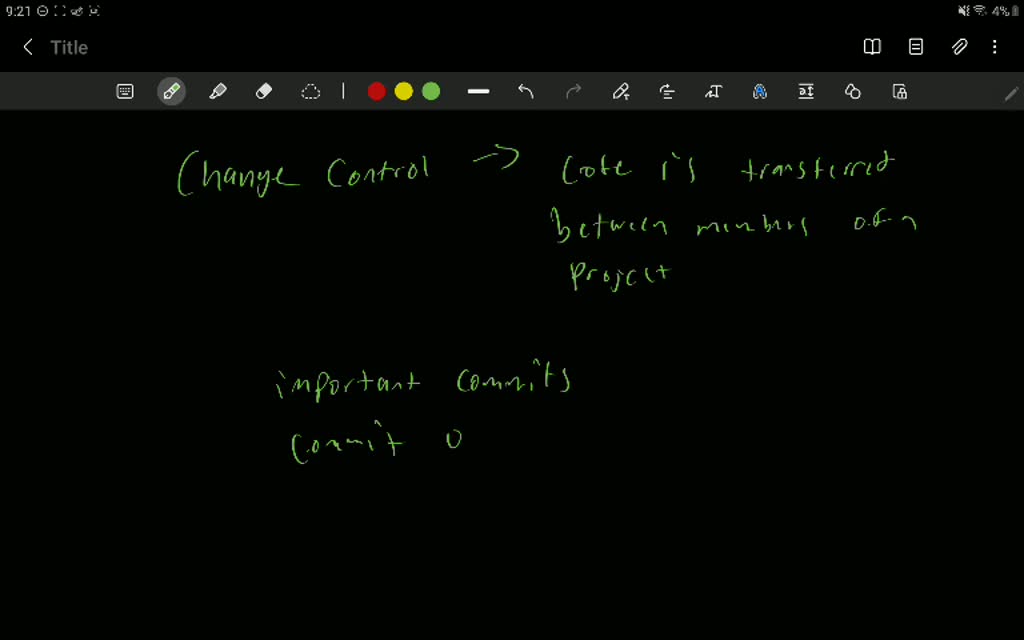 9:21
4%
Title
Change Control → Code is transferred
between members of a
project
important commits
Commit 0